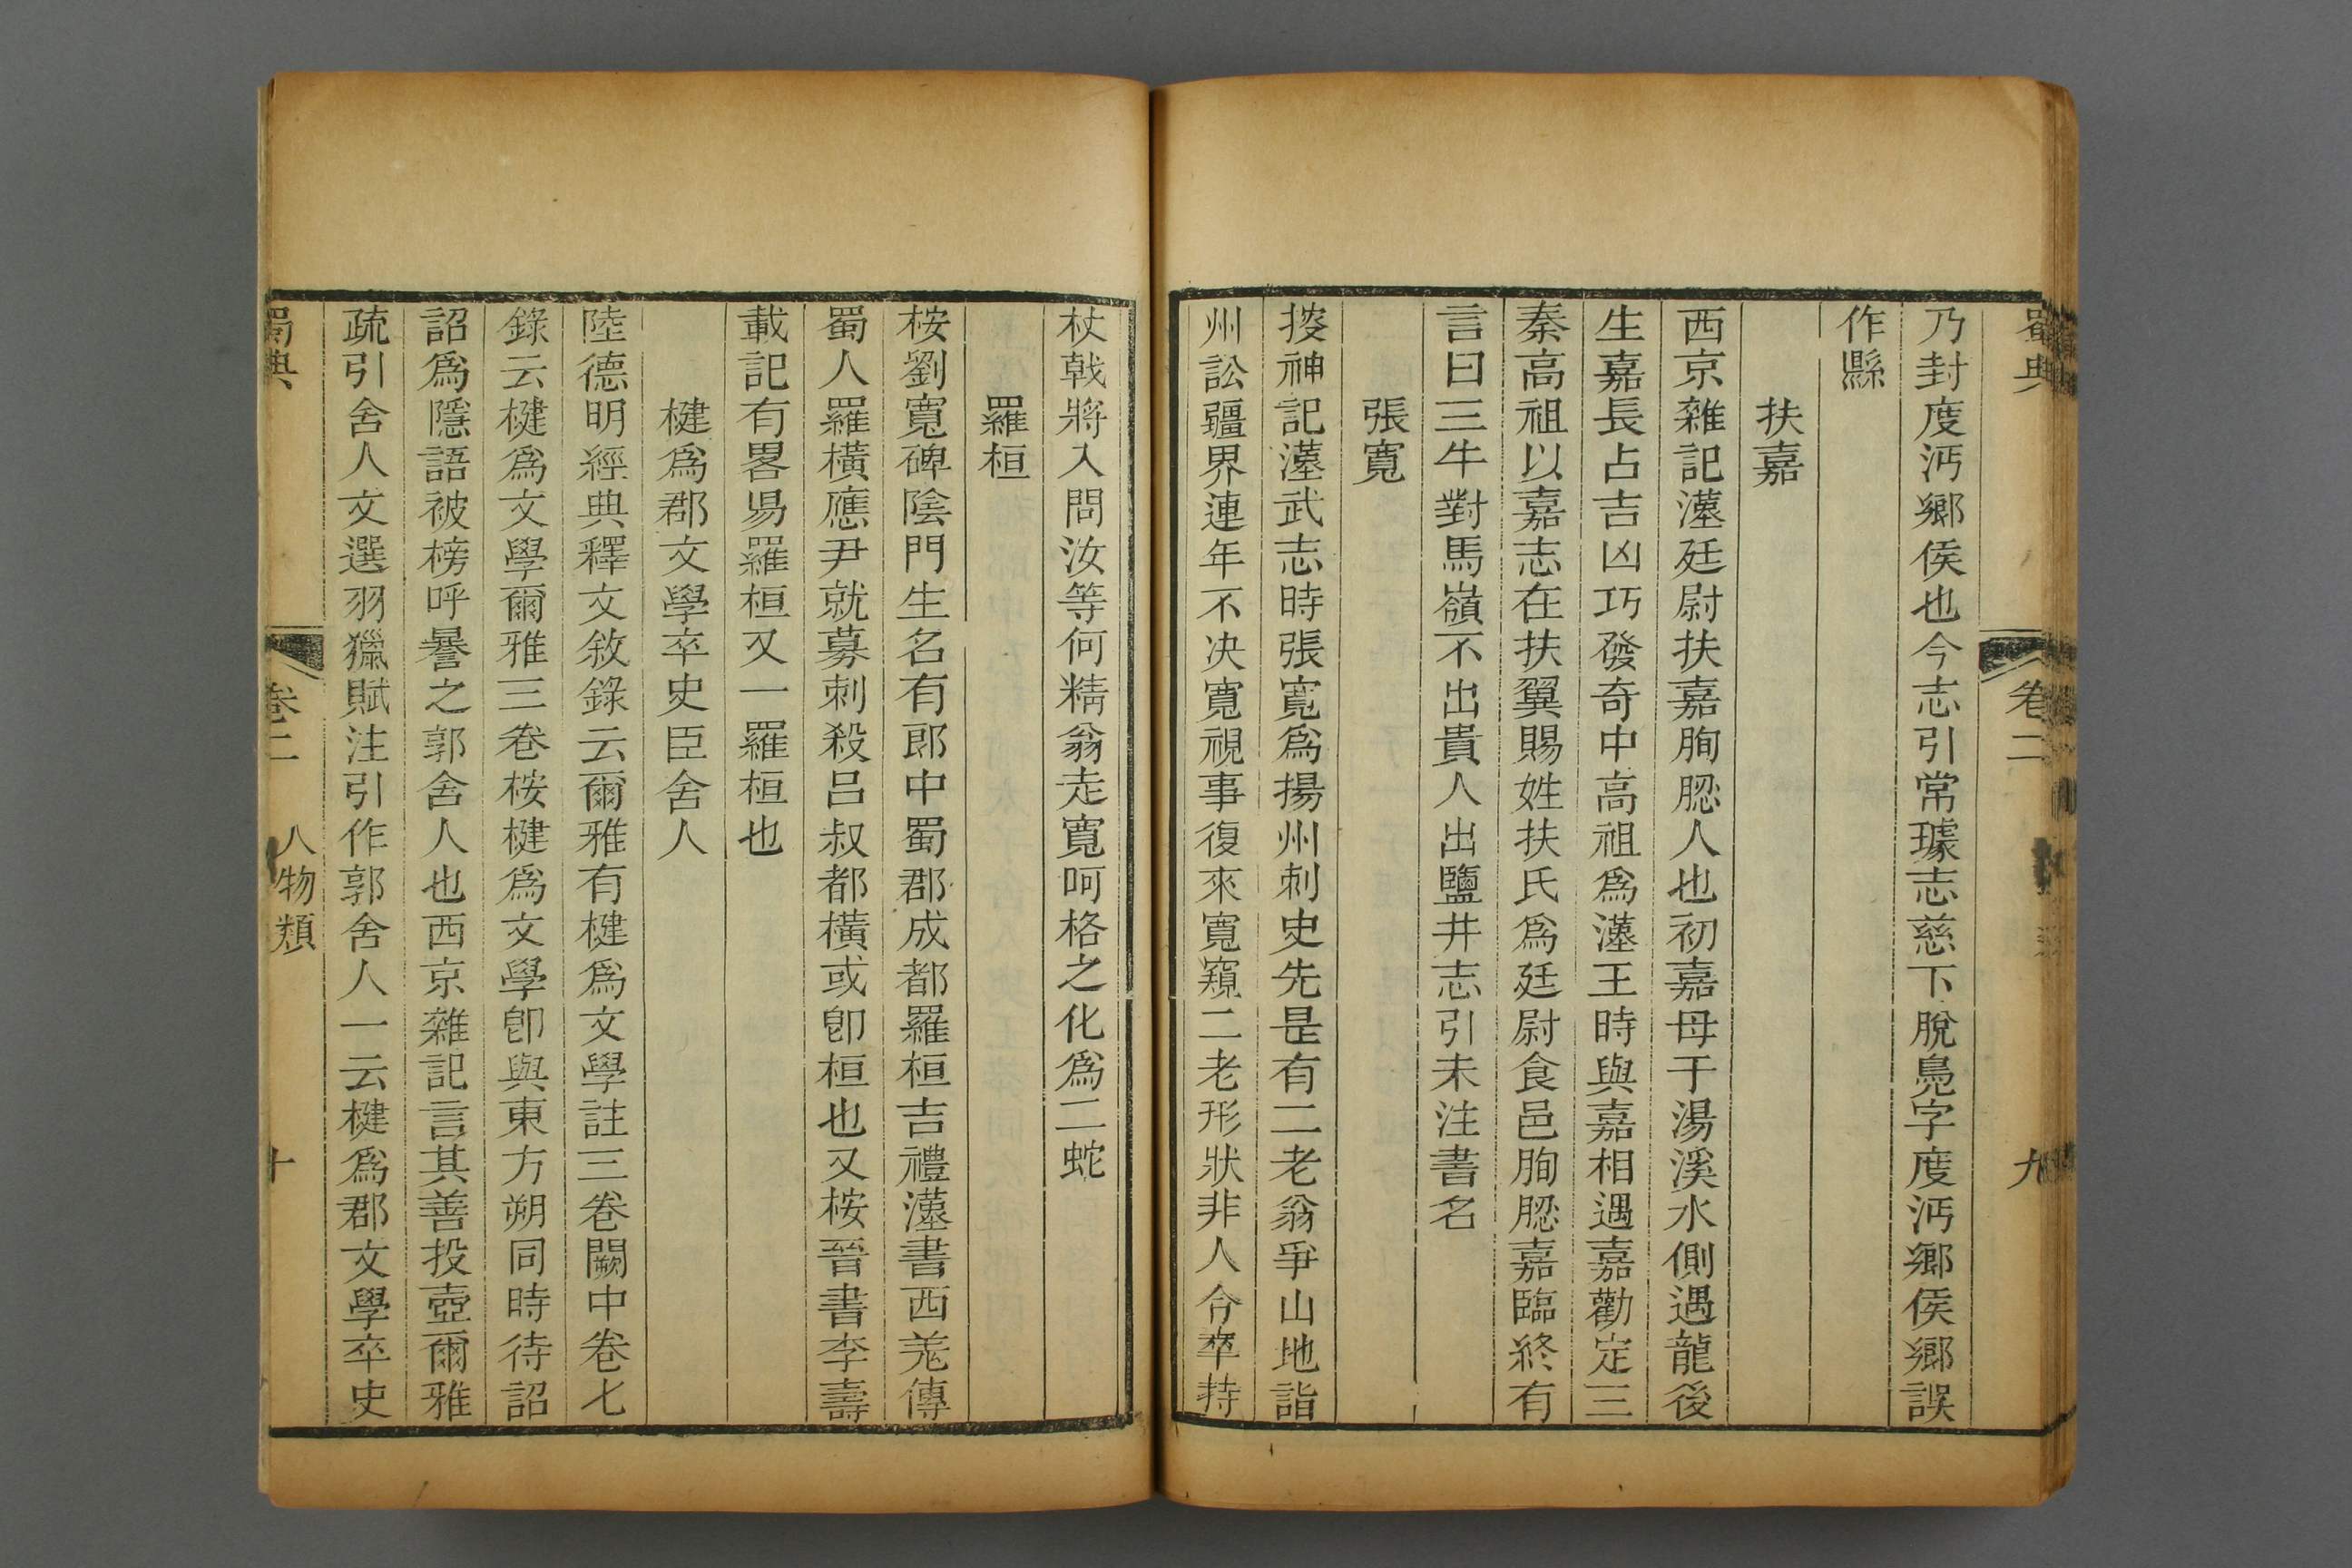 蜀典
卷二
九
乃封度沔鄉侯也今志引常璩志慈下脫鳧字度沔鄉侯鄉誤
作縣
扶嘉
西京雜記漢廷尉扶嘉朐䏰人也初嘉母于湯溪水側遇龍後
生嘉長占吉凶巧發奇中高祖為漢王時與嘉相遇嘉勸定三
秦高祖以嘉志在扶翼賜姓扶氏為廷尉食邑朐䏰嘉臨終有
言曰三牛對馬嶺不出貴人出鹽井志引未注書名
張寬
搜神記漢武志時張寬為揚州刺史先是有二老翁爭山地詣
州訟疆界連年不決寬視事復來寬窺二老形狀非人令卒持
杖戟將入問汝等何精翁走寬呵格之化為二蛇
羅桓
桉劉寬碑陰門生名有郎中蜀郡成都羅桓吉禮漢書西羌傳
蜀人羅橫應尹就募刺殺呂叔都橫或卽桓也又桉晉書李壽
載記有畧昜羅桓又一羅桓也
楗為郡文學卒史臣舍人
陸德明經典釋文敘錄云爾雅有楗為文學註三卷闕中卷七
錄云楗為文學爾雅三卷桉楗為文學卽與東方朔同時待詔
詔為隱語被榜呼謈之郭舍人也西京雜記言其善投壺爾雅
疏引舍人文選羽獵賦注引作郭舍人一云楗為郡文學卒史
蜀典
卷二
人物類
十